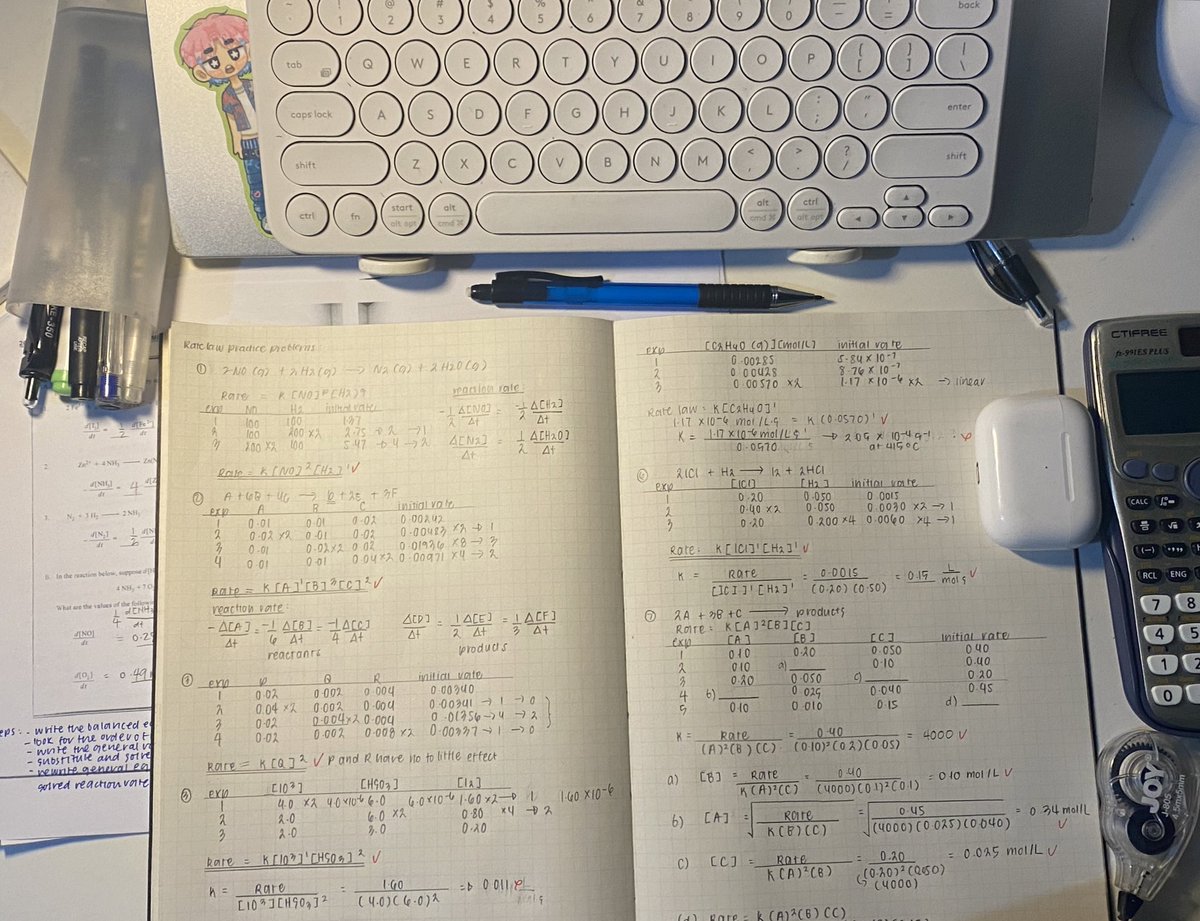 ~ ! @ # $ % ^ & * ( ) _ + back
1 2 3 4 5 6 7 8 9 0 - =
tab Q W E R T Y U I O P { [ } ] | \
caps lock A S D F G H J K L : ; " ' enter
shift Z X C V B N M < , > . ? / shift
ctrl fn start alt opt alt cmd ⌘ alt cmd ⌘ ctrl alt opt
Rate law practice problems:
① 2NO (g) + 2H2 (g) → N2 (g) + 2H2O (g)
Rate = K [NO]ᴾ [H2]q
reaction rate:
exp NO H2 initial rate
1 100 100 1.37
2 100 200 ×2 2.75 → 2 → 1
3 200 ×2 100 5.47 → 4 → 2
-1/2 Δ[NO]/Δt = -1/2 Δ[H2]/Δt
Δ[N2]/Δt = 1/2 Δ[H2O]/Δt
Rate = K[NO]² [H2]¹ ✓
② A + 6B + 4C → D + 2E + 3F
exp A B C initial rate
1 0.01 0.01 0.02 0.00242
2 0.02 ×2 0.01 0.02 0.00483 ×2 → 1
3 0.01 0.02×2 0.02 0.01936 ×8 → 3
4 0.01 0.01 0.04×2 0.00971 ×4 → 2
Rate = K[A]¹[B]³[C]² ✓
reaction rate:
-Δ[A]/Δt = -1/6 Δ[B]/Δt = -1/4 Δ[C]/Δt
reactants
Δ[D]/Δt = 1/2 Δ[E]/Δt = 1/3 Δ[F]/Δt
products
exp P Q R initial rate
1 0.02 0.002 0.004 0.00340
2 0.04 ×2 0.002 0.004 0.00341 → 1 → 0
3 0.02 0.004×2 0.004 0.01356 → 4 → 2
4 0.02 0.002 0.008 ×2 0.00337 → 1 → 0
Rate = K[Q]² ✓ P and R have no to little effect
exp [IO3] [HSO3] [I2]
1 4.0 ×2 4.0×10⁻⁶ 6.0 6.0×10⁻⁶ 1.60 ×2 → 1 1.60 ×10⁻⁶
2 2.0 6.0 ×2 0.80 ×4 → 2
3 2.0 3.0 0.20
Rate = K[IO3]¹[HSO3]² ✓
K = Rate/[IO3][HSO3]² = 1.60/(4.0)(6.0)² ⇒ 0.011
exp [C2H4O (g)] [mol/L] initial rate
1 0.00285 5.84 × 10⁻⁷
2 0.00428 8.76 × 10⁻⁷
3 0.00570 ×2 1.17 × 10⁻⁶ ×2 → linear
Rate law = K[C2H4O]¹
1.17 ×10⁻⁶ mol/L·s = K (0.0570)¹ ✓
K = 1.17 ×10⁻⁶ mol/L·s/0.0570 → 2.05 × 10⁻⁴ s⁻¹
at 415°C
⑥ 2ICl + H2 → I2 + 2HCl
exp [ICl] [H2] initial rate
1 0.20 0.050 0.0015
2 0.40 ×2 0.050 0.0030 ×2 → 1
3 0.20 0.200 ×4 0.0060 ×4 → 1
Rate: K[ICl]¹[H2]¹ ✓
K = Rate/[ICl]¹[H2]¹ = 0.0015/(0.20)(0.50) = 0.15 L/mol s ✓
⑦ 2A + 3B + C → products
Rate = K[A]²[B][C]
exp [A] [B] [C] initial rate
1 0.10 0.20 0.050 0.40
2 0.10 a) ____ 0.10 0.40
3 0.20 0.050 c) ____ 0.20
4 b) ____ 0.025 0.040 0.45
5 0.10 0.010 0.15 d) ____
K = Rate/(A)²(B)(C) = 0.40/(0.10)²(0.2)(0.05) = 4000 ✓
a) [B] = Rate/K(A)²(C) = 0.40/(4000)(0.1)²(0.1) = 0.10 mol/L ✓
b) [A] = √Rate/K(B)(C) = √0.45/(4000)(0.025)(0.040) = 0.34 mol/L ✓
c) [C] = Rate/K(A)²(B) = 0.20/(0.20)²(0.050)(4000) = 0.025 mol/L ✓
(d) Rate = K(A)²(B)(C)
2.
Zn²⁺ + 4 NH3
3. N2 + 3 H2 → 2 NH3
In the reaction below, suppose
4 NH3 + 7 O
What are the values of the following
- write the balanced
- look for the order of
- write the general
- substitute and solve
- rewrite general
solved reaction rate
CTIFREE
fx-991ES PLUS
CALC
RCL ENG
7 8
4 5
1 2
0
JOY
4.5mmx5m